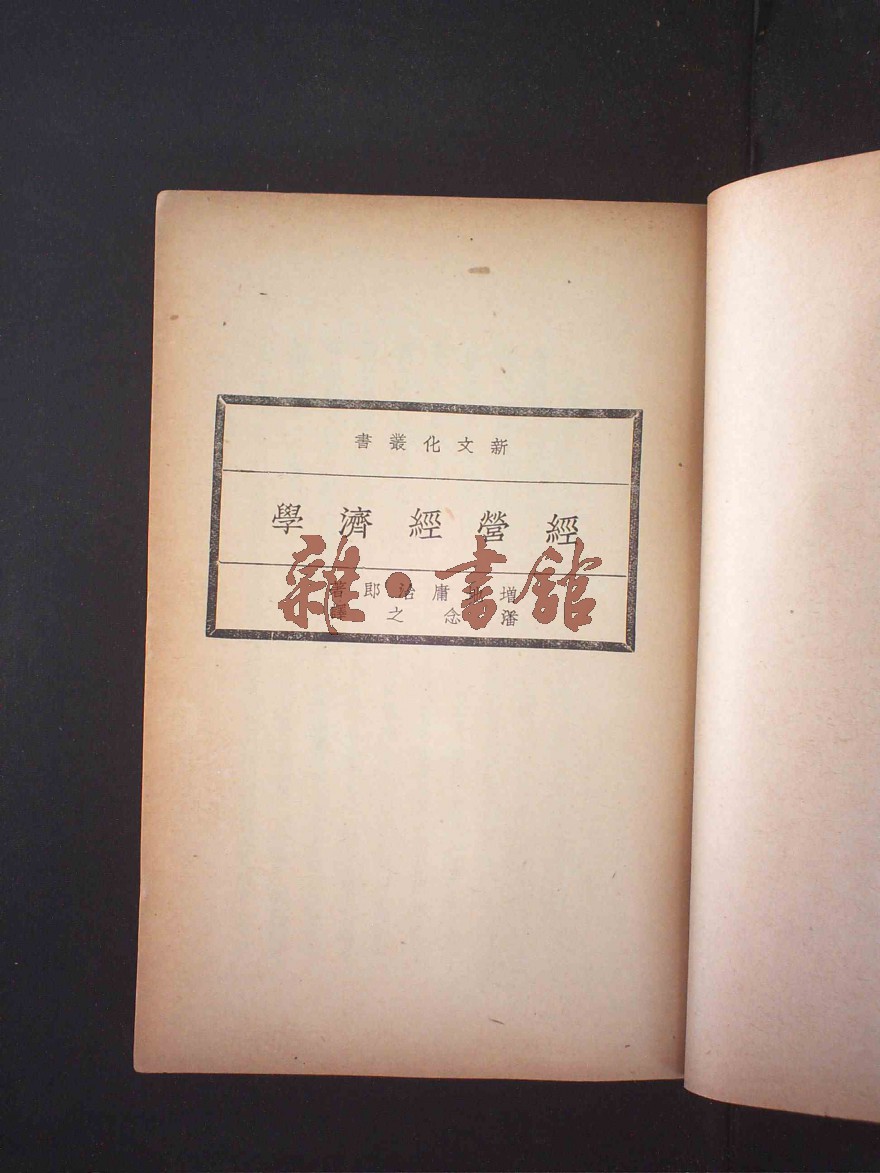 新文化叢書
經營經濟學
增地庸治郎著
潘念之譯
雜·書館